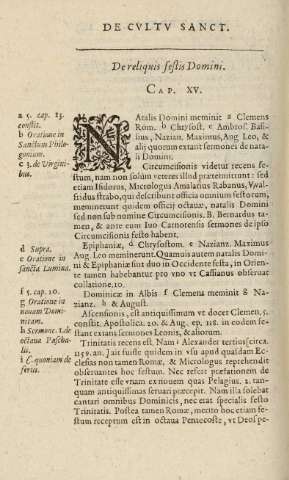 DE CVLTV SANCT.
De reliquis festis Domini.
CAP. XV.
a 5. cap. 13.
constit.
b Oratione in
Sanctum Philo-
gonium.
c 3. de Virgini-
bus.
NAtalis Domini meminit a Clemens
Rom. b Chrysost. c Ambros. Basi-
lius, Nazian. Maximus, Aug. Leo, &
alij quorum extant sermones de nata-
li Domini.
Circumcisionis videtur recens fe-
stum, nam non solùm veteres illud prætermittunt: sed
etiam Isidorus, Micrologus Amalarius Rabanus, Vual-
fridus strabo, qui de scribunt officia omnium festorum,
meminerunt quidem officij octauæ, natalis Domini
sed non sub nomine Circumcisionis. B. Bernardus ta-
men, & ante eum Iuo Carnotensis sermones de ipso
Circumcisionis festo habent.
d Supra.
e Oratione in
sancta Lumina.
Epiphaniæ, d Chrysostom. e Nazianz. Maximus
Aug. Leo meminerunt. Quamuis autem natalis Domi-
ni & Epiphaniæ sint duo in Occidente festa, in Orien-
te tamen habebantur pro vno vt Cassianus obseruat
collatione. 10.
f 5. cap. 20.
g Oratione in
nouam Domi-
nicam.
h Sermone 1. de
octaua Pascha-
lis.
i C. quoniam de
feriis.
Dominicæ in Albis f Clemens meminit g Na-
zianz. h & August.
Ascensionis, est antiquissimum vt docet Clemen. 5.
constit. Apostolica. 20. & Aug. ep. 118. in eodem fe-
stant extant sermones Leonis, & aliorum.
Trinitatis recens est. Nam i Alexander tertius circa.
1159. an. Iait fuisse quidem in vsu apud quasdam Ec-
clesias non tamen Romæ, & Micrologus reprehendit
obseruantes hoc festum. Nec refert præfationem de
Trinitate esse vnam ex nouem quas Pelagius. 2. tan-
quam antiquissimas seruari præcepit. Nam illa solebat
cantari omnibus Dominicis, nec erat specialis festo
Trinitatis. Postea tamen Romæ, meritò hoc etiam fe-
stum receptum est in octaua Pentecoste, vt Deo spe-